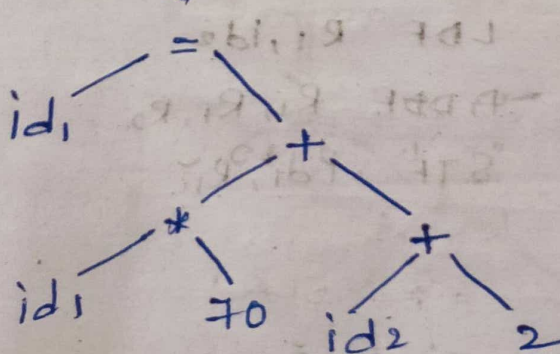 =
id₁
+
* +
id₁ 70 id₂ 2